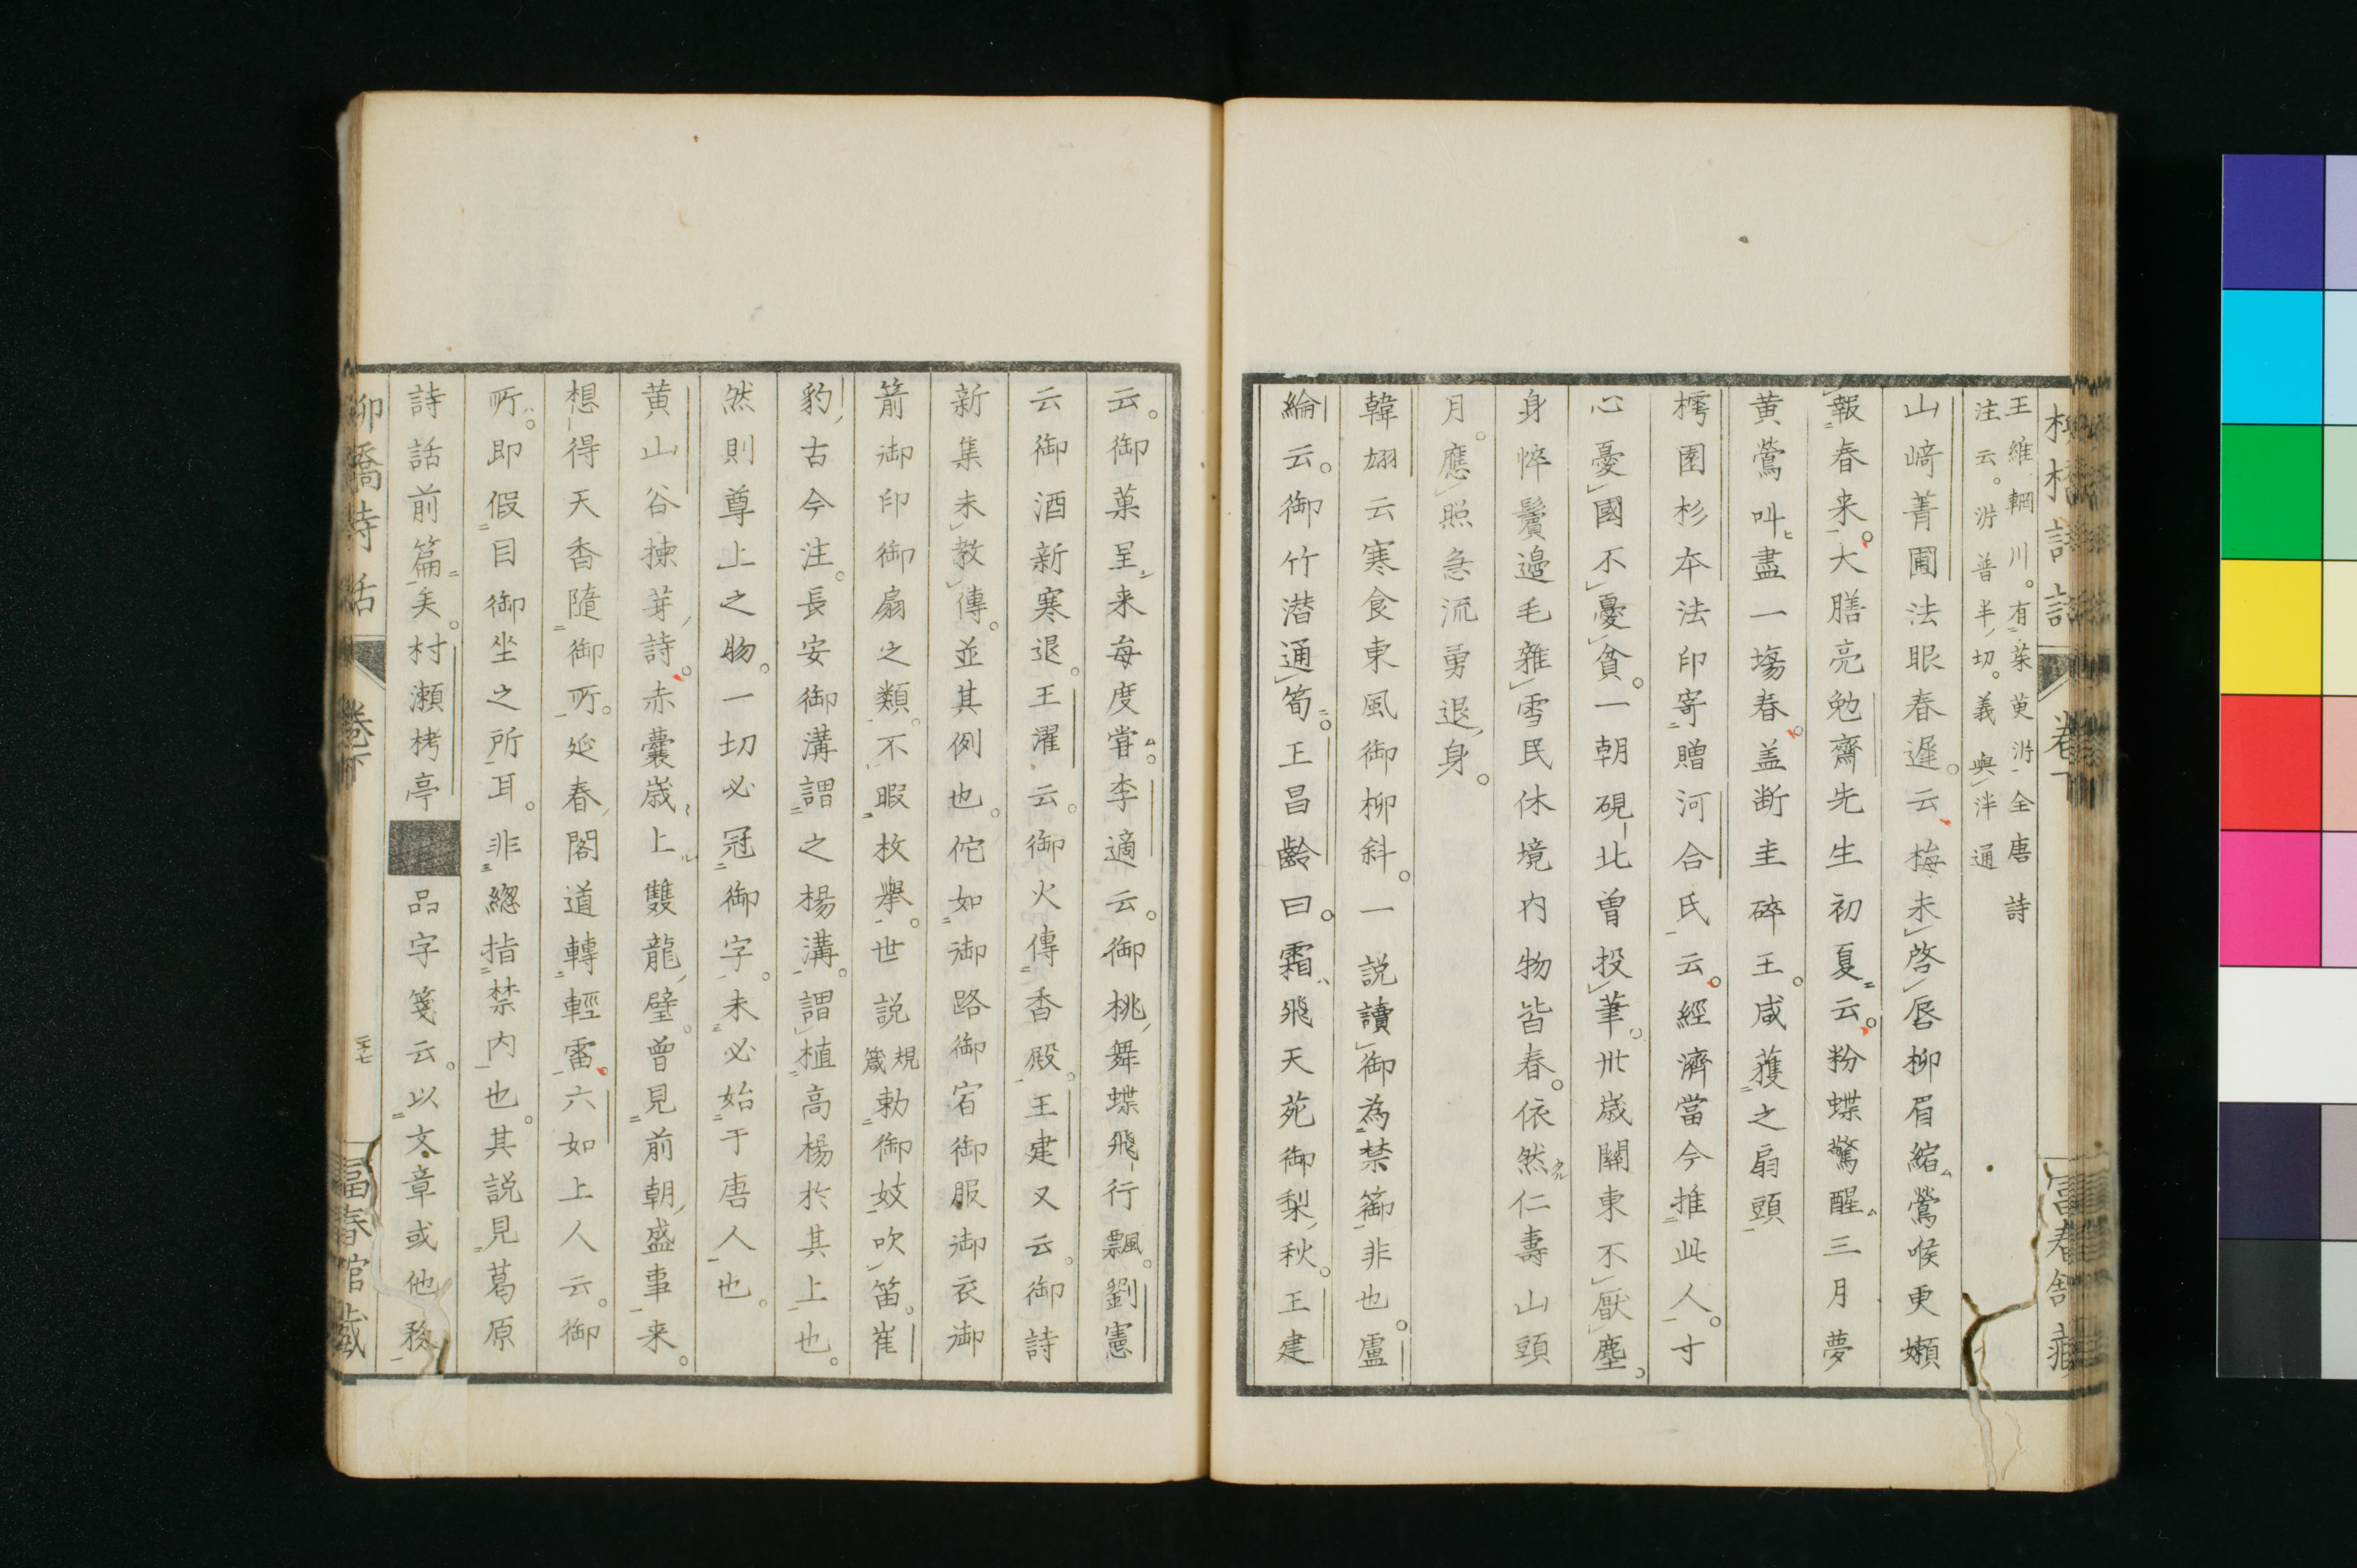 柳橋詩話 卷下 冨春舘藏
王維輞川。有茱萸沜全唐詩
注云。沜普半切。義與泮通
山﨑菁圃法眼春遲。云梅未啓唇柳眉縮鶯喉更嬾
報春来。大膳亮勉齋先生初夏云。粉蝶驚醒三月夢
黄鶯叫盡一塲春。盖断圭碎王。咸蒦之扇頭
樗園杉夲法印寄贈河合氏云。經濟當今推此人。寸
心憂國不憂貧。一朝硯北曽投筆。卅歳關東不厭塵。
身悴鬢邉毛雜雪民休境内物皆春。依然仁壽山頭
月。應照急流勇退身。
韓翃云寒食東風御柳斜。一説讀御為禁籞非也。盧
綸云。御竹潜通筍。王昌齡曰。霜飛天苑御梨秋。王建
云。御菓呈来每度甞。李適云。御桃舞蝶飛行飄。劉憲
云御酒新寒退。王濯云。御火傳香殿。王建又云。御詩
新集未教傳。並其例也。佗如御路御宿御服御衣御
箭御印御扇之類。不暇枚擧。世説規箴勅御妓吹笛。崔
豹古今注。長安御溝謂之楊溝。謂植高楊於其上也。
然則尊上之物。一切必冠御字。未必始于唐人也。
黄山谷揀芽詩。赤囊歳上雙龍璧。曽見前朝盛事来。
想得天香隨御所。延春閣道轉輕雷。六如上人云。御
所。即假目御坐之所耳。非總指禁内也。其説見葛原
詩話前篇矣。村瀬栲亭品字箋云。以文章或他務
柳橋詩話 卷下 二十七 冨春舘藏